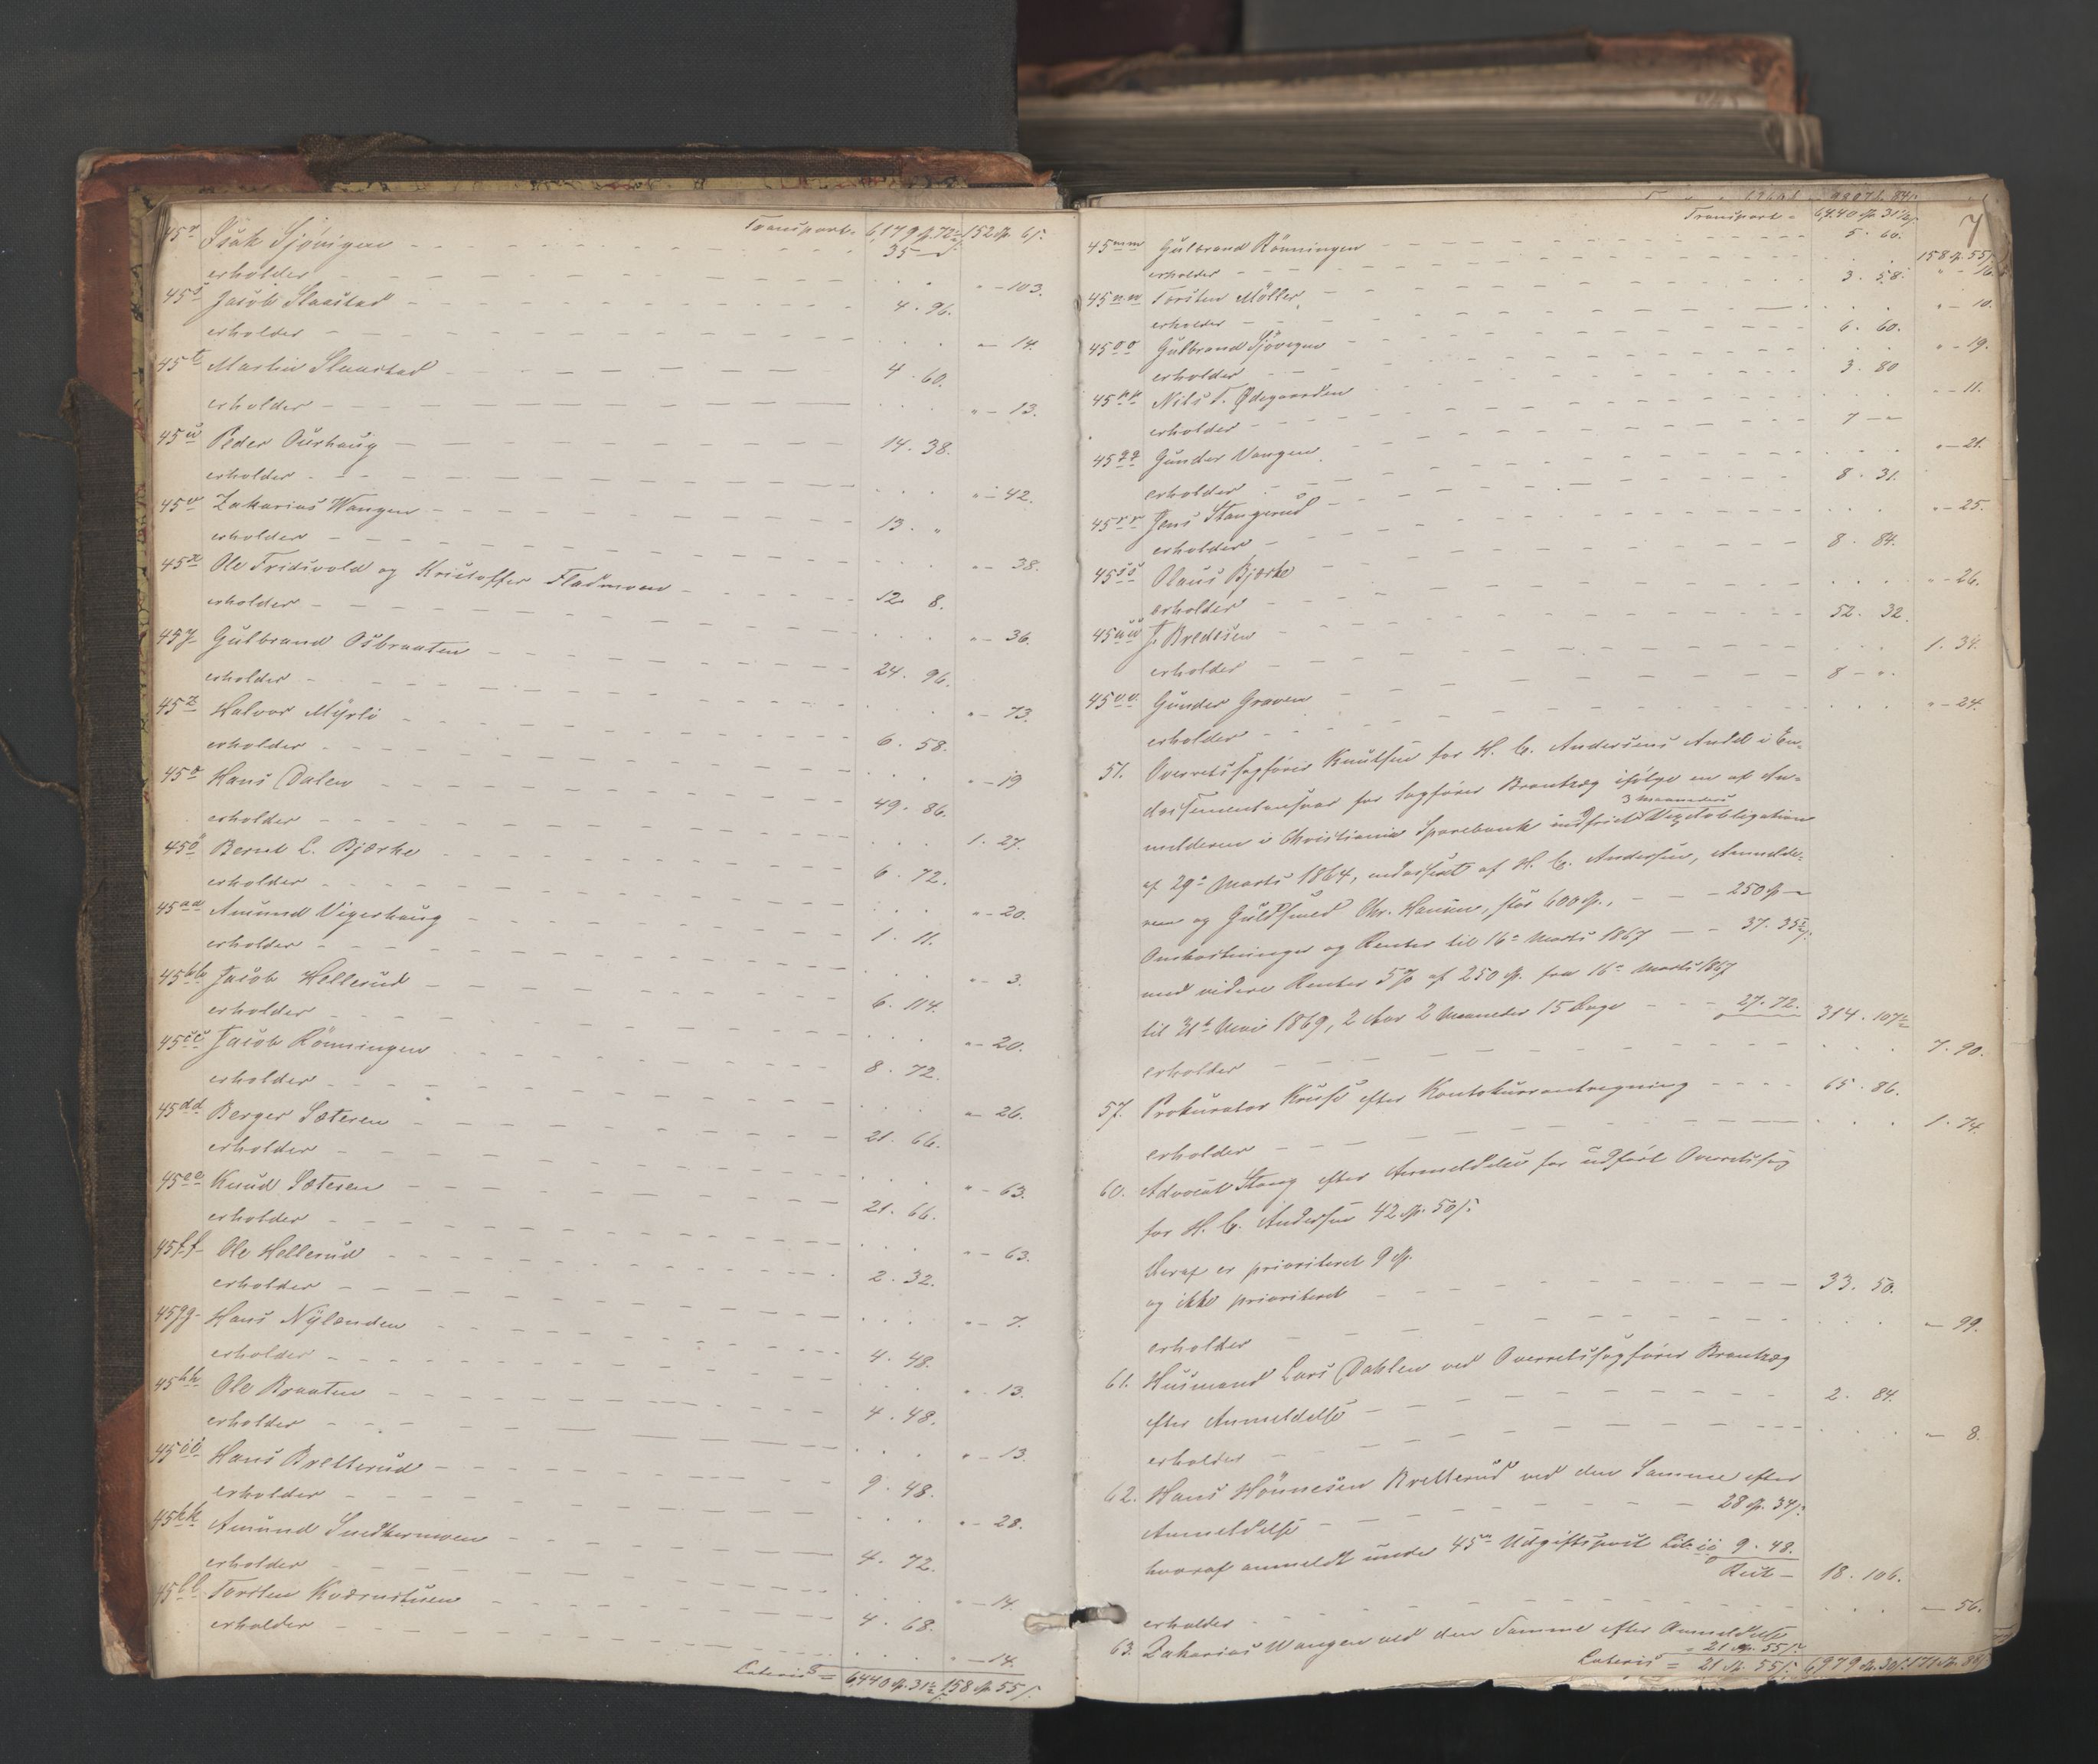 Transport = 6,179 sp. 72 152 sp. 6 s.
45r Isak Sjøvigen - - - 35 -
erholder - - - " - 103.
45s Jacob Slaastad - - - 4. 96.
erholder - - - " - 14.
45t Martin Slaastad - - - 4. 60.
erholder - - - " - 13.
45u Peder Ourhaug - - - 14. 38.
erholder - - - " - 42.
45v Zakarias Wangen - - - 13. "
erholder - - - " - 38.
45x Ole Fridsvold og Kristoffer Fladmoen - - - 12. 8.
erholder - - - " - 36.
45y Gulbrand Osbraaten - - - 24. 96.
erholder - - - " - 73.
45z Halvor Myrli - - - 6. 58.
erholder - - - " - 19
45æ Hans Dalen - - - 49. 86.
erholder - - - 1. 27.
45ø Bernt L. Bjørke - - - 6. 72.
erholder - - - " - 20.
45aa Amund Vigerhaug - - - 1. 11.
erholder - - - " - 3.
45bb Jacob Hellerud - - - 6. 114.
erholder - - - " - 20.
45cc Jacob Rönningen - - - 8. 72.
erholder - - - " - 26.
45dd Berger Sæteren - - - 21. 66.
erholder - - - " - 63.
45ee Knud Sæteren - - - 21. 66.
erholder - - - " - 63.
45ff Ole Hellerud - - - 2. 32.
erholder - - - " - 7.
45gg Hans Nylenden - - - 4. 48.
erholder - - - " - 13.
45hh Ole Braaten - - - 4. 48.
erholder - - - " - 13.
45ii Hans Bretterud - - - 9. 48.
erholder - - - " - 28.
45kk Amund Snekkermoen - - - 4. 72.
erholder - - - " - 14.
45ll Torsten Kværnstuen - - - 4. 68.
erholder - - - " - 14.
Lateris = 6440 sp. 31½ 158 sp. 55 s.
7
Transport = 6,440 sp. 31½ s. 158 sp. 55 s.
45mm Gulbrand Rönningen - - - 5. 60.
erholder - - - " - 16.
45nn Torsten Möller - - - 3. 58.
erholder - - - " - 10.
45oo Gulbrand Sjøvigen - - - 6. 60.
erholder - - - " - 19.
45pp Nils T. Ødegaarden - - - 3. 80
erholder - - - " - 11.
45qq Gunder Vangen - - - 7 - "
erholder - - - " - 21.
45rr Jens Stangerud - - - 8. 31.
erholder - - - " - 25.
45ss Olaus Bjørke - - - 8. 84.
erholder - - - " - 26.
45uu J. Bredesen - - - 52. 32.
erholder - - - 1. 34.
45vv Gunder Graven - - - 8 - ".
erholder - - - " - 24.
51. Overretssagfører Knutsen for H. C. Andersens Andel i En-
dossementansvar for Sagfører Brantzæg ifølge en af An-
melderen i Christiania Sparebank indfriet 3 Maaneders Vexelobligation
af 29de Marts 1864, endosseret af H. C. Andersen, Anmelde-
ren og Guldsmed Chr. Hansen, stor 600 sp., - - 250 sp -
Omkostninger og Renter til 16de Marts 1867 - - 37. 35½ s.
med videre Renter 5% af 250 sp. fra 16de Marts 1867
til 31te Mai 1869, 2 Aar 2 Maaneder 15 Dage - - - 27. 72. 314. 107½
erholder - - - 7. 90.
57. Prokurator Kruse efter Kontokurantregning - - - 65. 86.
erholder - - - 1. 74.
60. Advocat Stang efter Anmeldelse for udført Overretssag
for H. C. Andersen 42 sp. 50 s.
Deraf er prioriteret 9 sp.
og ikke prioriteret - - - 33. 50.
erholder - - - " - 99.
61. Husmand Lars Dahlen ved Overretssagfører Brantzæg
efter Anmeldelse - - - 2. 84.
erholder - - - " - 8.
62. Hans Hönnesen Bretterud ved den Samme efter
Anmeldelse - - - 28 sp. 34 s.
hvoraf anmeldt under 45de Udgiftspost Lit. ii 9. 48.
Rest - 18. 106.
erholder - - - " - 56.
63. Zakarias Wangen ved den Samme efter Anmeldelse
= 21 sp. 55 s.
Lateris = 21 sp. 55 s. 6,979 sp. 30 s. 171 sp. 88 s.